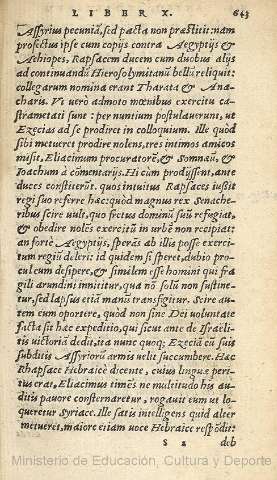 LIBER X. 643
Assyrius pecuniã, sed pacta non præstitit: nam
profectus ipse cum copijs contra Aegyptios &
Aethiopes, Rapsacem ducem cum duobus alijs
ad continuandũ Hierosolymitanũ belli reliquit:
collegarum nomina erant Tharata & Ana-
charis. Vt uero admoto mœnibus exercitu ca-
strametati sunt: per nuntium postulauerunt, ut
Ezecias ad se prodiret in colloquium. Ille quòd
sibi metueret prodire nolens, tres intimos amicos
misit, Eliacimum procuratorẽ, & Somnaũ, &
Ioachum à cõmentarijs. Hi cum prodissent, ante
duces constiterũt. quos intuitus Rapsaces iussit
regi suo referre hæc: quòd magnus rex Senache-
ribus scire uult, quo fretus dominũ suũ refugiat,
& obedire nolẽs exercitũ in urbẽ non recipiat:
an fortè Aegyptijs, sperãs ab illis posse exerci-
tum regiũ deleri: id quidem si speret, dubio pro-
culeum desipere, & similem esse homini qui fra
gili arundini innititur, qua nõ solũ non sustine-
tur, sed lapsus etiã manus transfigitur. Scire au-
tem eum oportere, quòd non sine Dei uoluntate
facta sit hæc expeditio, qui sicut ante de Israëli-
tis uictoriã dedit, ita nunc quoq; Ezeciã cũ suis
subditis Assyriorũ armis uelit succumbere. Hæc
Rhapsace Hebraicè dicente, cuius linguæ peri-
tus erat, Eliacimus timẽs ne multitudo his au-
ditis pauore consternaretur, rogauit eum ut lo-
queretur Syriacè. Ille satis intelligens quid alter
metueret, maiore etiam uoce Hebraicè respõdit:
S 2 deb
Ministerio de Educación, Cultura y Deporte